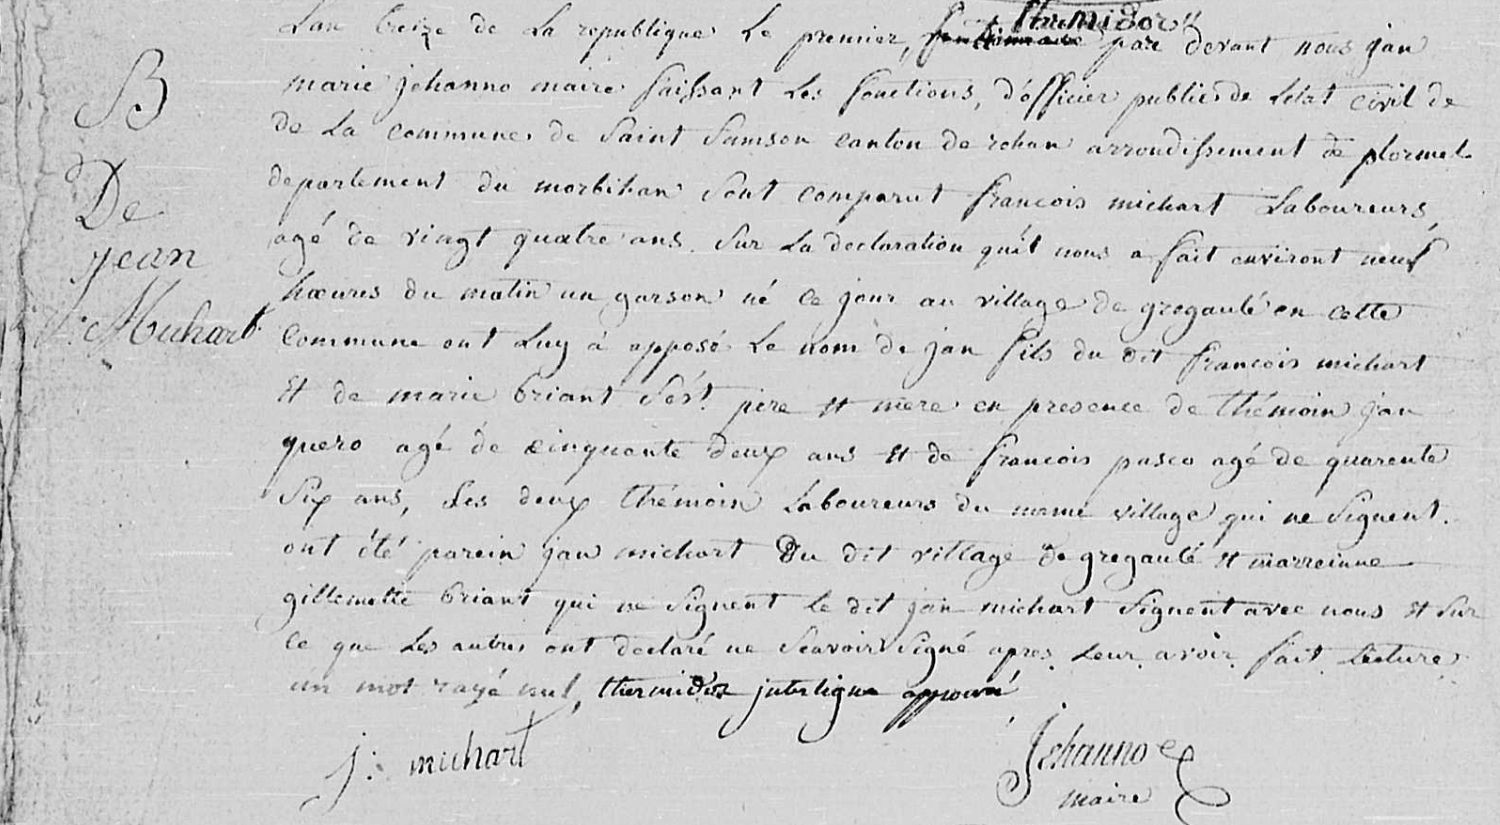 B
De
jean
Michart
thermidor
L'an treize de La republique Le premier, pare devant nous jan
marie jehanno maire faissant Les fonctions, d'officier publie de Letat civil de
de La commune de Saint Samson canton de rohan arrondissement de plormel
departement du morbihan sont comparut francois michart Laboureurs,
agé de vingt quatre ans. Sur La declaration qu'il nous a fait environt neuf
hœures du matin un garson né ce jour au village de gregaulé en cette
commune ont Luy à apposé Le nom de jan fils du dit francois michart
Et de marie briant Ses pere et mere en presence de thémoin jan
quero agé de cinquente deux ans Et de francois pasco agé de quarente
Six ans, Les deux thémoin Laboureurs du meme village qui ne Signent.
ont été parein jan michart Du dit village de gregaulé Et marreinne
gillemette briant qui ne Signent le dit jan michart Signent avec nous Et Sur
ce que Les autres ont declaré ne Scavoir Signé apres Leur avoir fait Lecture
un mot rayé nul, thermidor interligne approuvé
j: michart
Jehanno
maire